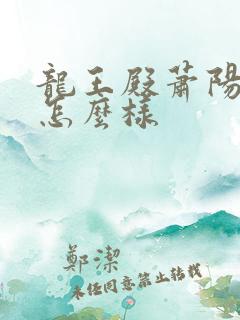 龍王殿蕭陽
怎麼樣
鄭潔
未经同意禁止转载